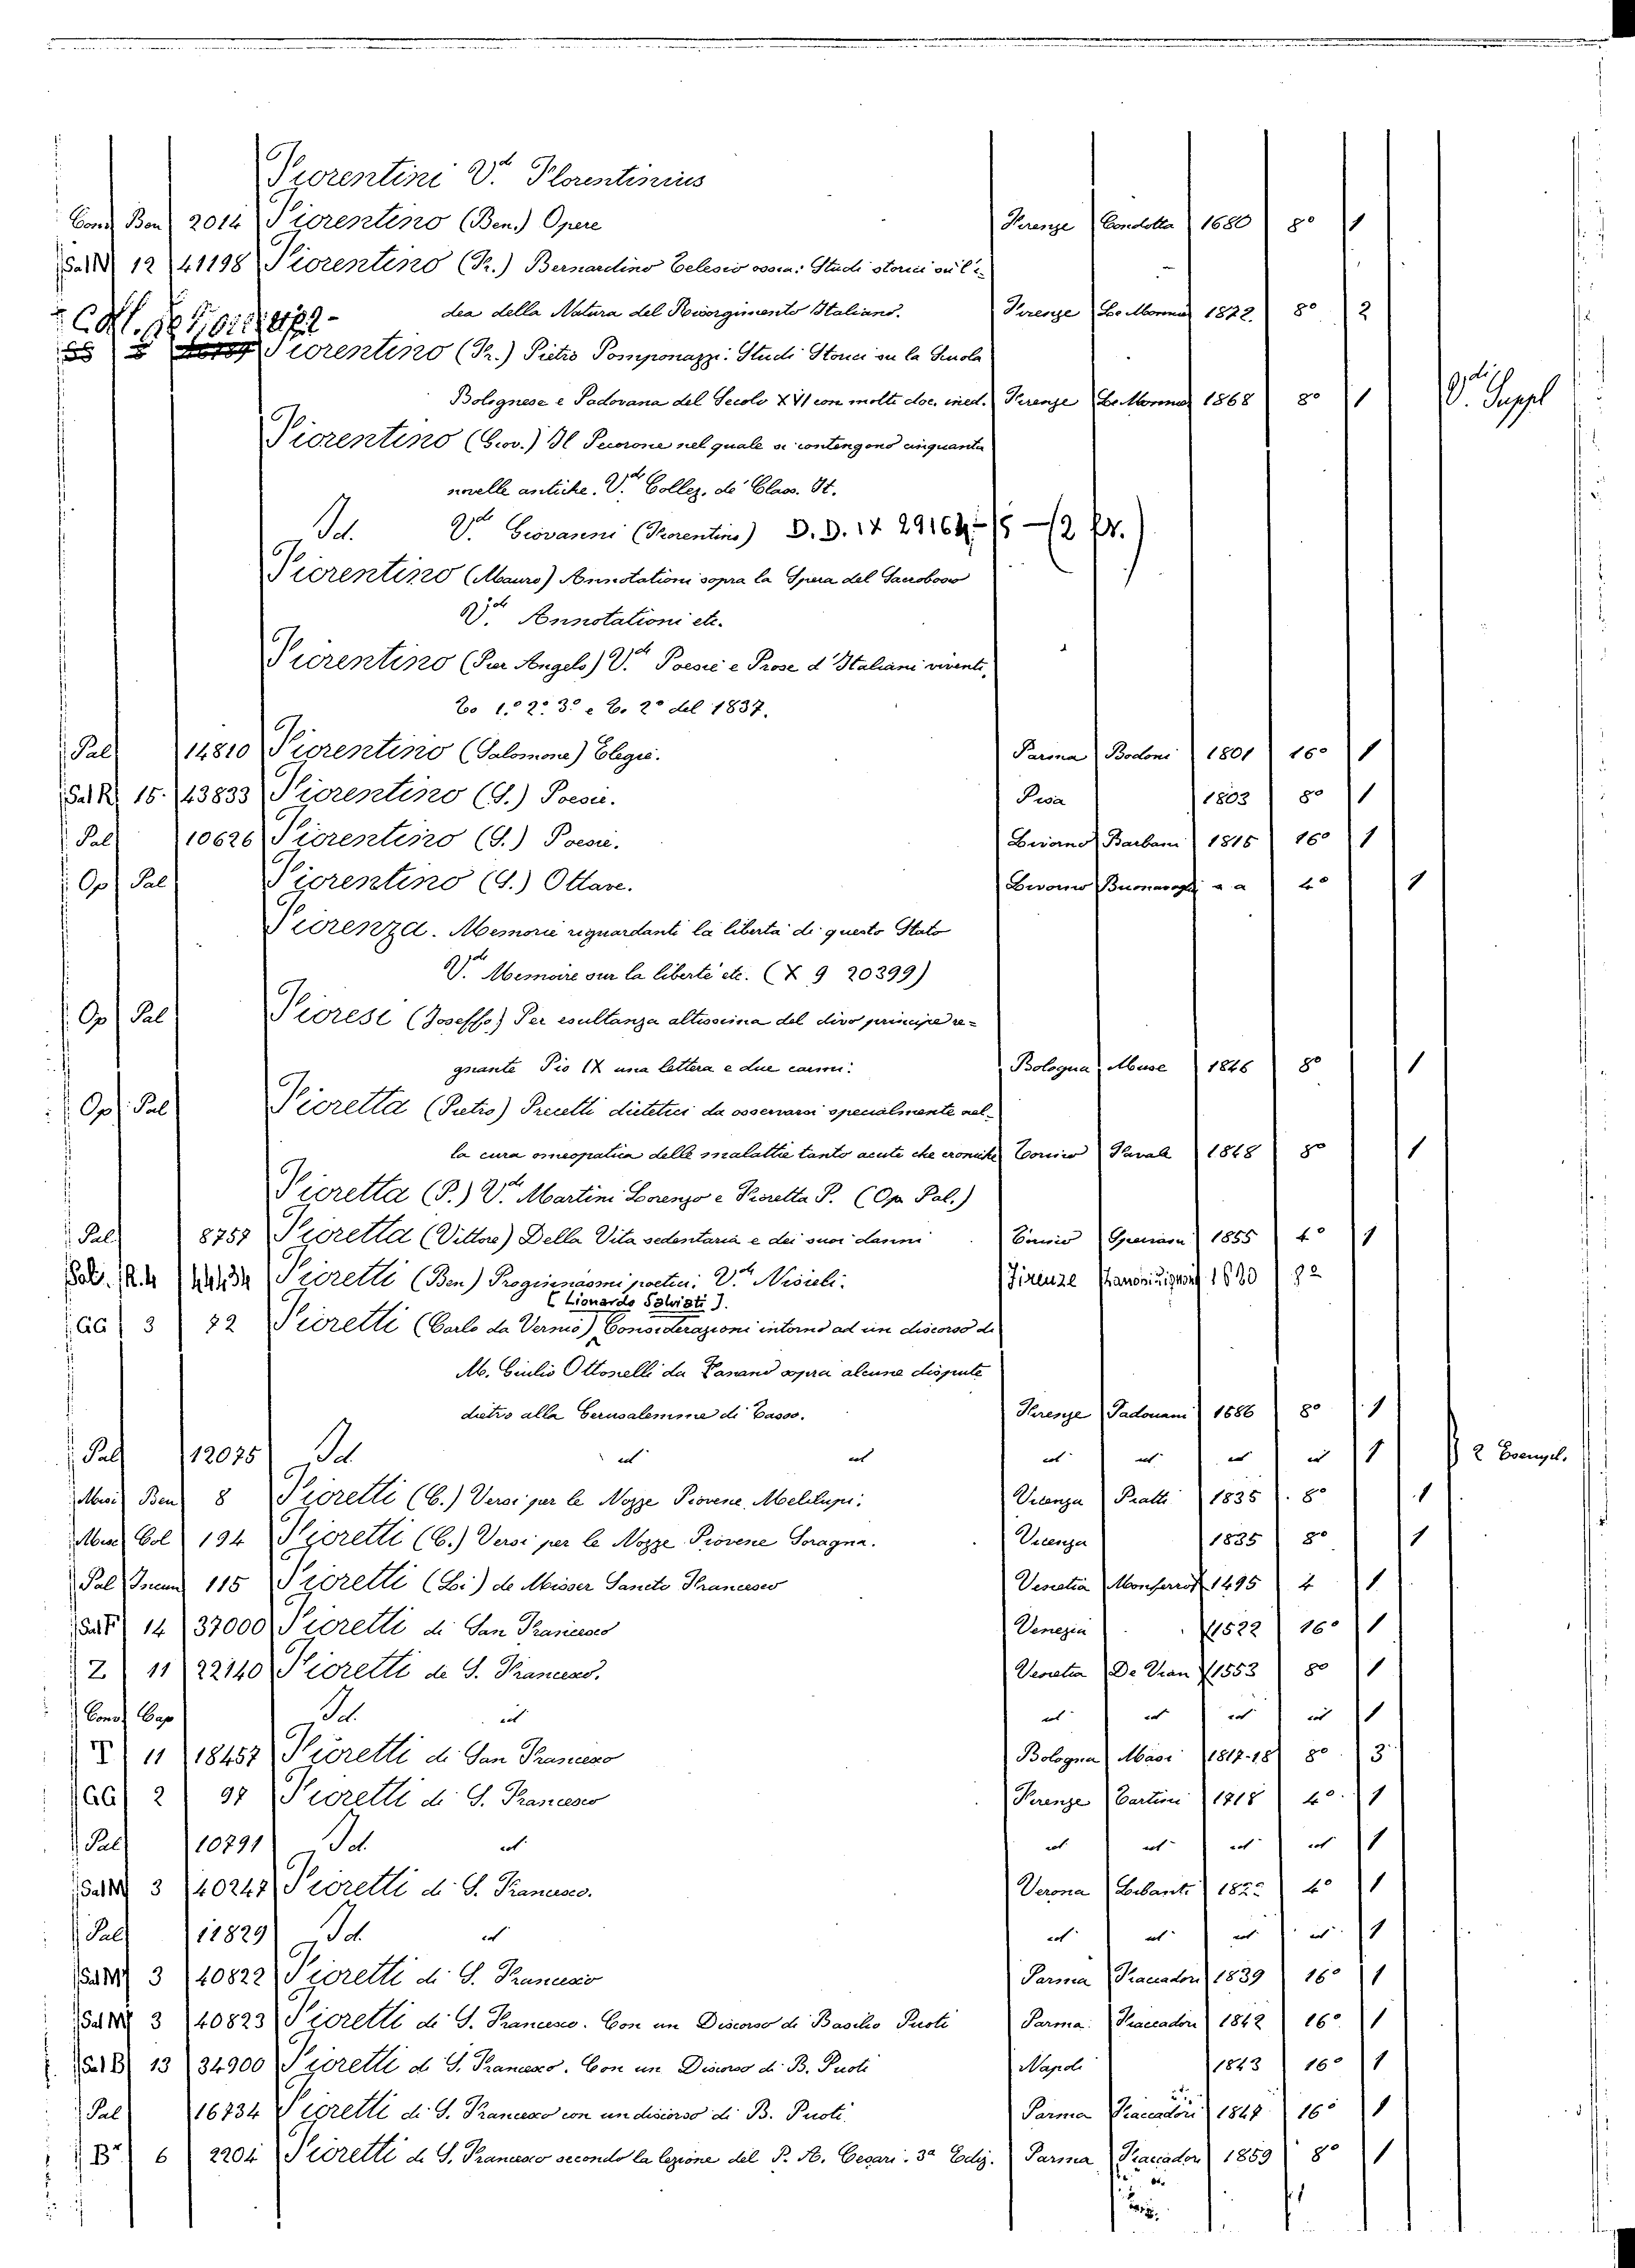 Fiorentini V.de Florentinius
Cons Ben 2014 Fiorentino (Ben.) Opere Firenze Condotta 1680 8° 1
Sal M 12 41198 Fiorentino (F.) Bernardino Telesio ossia: Studi storici sull'i-
dea della Natura del Risorgimento Italiano. Firenze Le Monnier 1872 8° 2
Fiorentino (F.) Pietro Pomponazzi: Studi Storici su la Scuola
Bolognese e Padovana del Secolo XVI con molti doc. ined. Firenze Le Monnier 1868 8° 1 V. Suppl
Fiorentino (Giov.) Il Pecorone nel quale si contengono cinquanta
novelle antiche. V.de Collez. de' Class. It.
Id. V.de Giovanni (Fiorentino) D. D. 14 29164-15 - (2 Es.)
Fiorentino (Mauro) Annotationi sopra la Spera del Sacrobosco
V.de Annotationi etc.
Fiorentino (Pier Angelo) V.de Poesie e Prose d'Italiani viventi,
To 1.° 2.° 3.° e T. 2° del 1837.
Pal 14810 Fiorentino (Salomone) Elegie. Parma Bodoni 1801 16° 1
Sal R 15. 43833 Fiorentino (S.) Poesie. Pisa 1803 8° 1
Pal 10626 Fiorentino (S.) Poesie. Livorno Barbani 1815 16° 1
Op Pal Fiorentino (S.) Ottave. Livorno a a 4° 1
Fiorenza. Memorie riguardanti la libertà di questo Stato
V.de Memoire sur la liberté etc. (X 9 20399)
Op Pal Fioresi (Joseffo) Per esultanza altissima del divo principe re-
gnante Pio IX una lettera e due carmi. Bologna Muse 1846 8° 1
Op. Pal Fioretta (Pietro) Precetti dietetici da osservarsi specialmente nel-
la cura omeopatica delle malattie tanto acute che croniche Torino Favale 1848 8° 1
Fioretta (P.) V.de Martini Lorenzo e Fioretta P. (Op. Pal.)
Pal 8757 Fioretta (Vittore) Della Vita sedentaria e dei suoi danni 1855 4° 1
R. 4 44434 Fioretti (Ben) Proginnasmi poetici. V.de Nisieli. Firenze 8°
[Lionardo Salviati].
GG 3 72 Fioretti (Carlo da Vernio) Considerazioni intorno ad un discorso di
M. Giulio Ottonelli da Fanano sopra alcune dispute
dietro alla Gerusalemme di Tasso. Firenze Padouani 1586 8° 1
Pal 12075 Id. id id id id id id 1 2 Esempl.
Misc Ben 8 Fioretti (C.) Versi per le Nozze Piovene Melilupi. Vicenza 1835 8° 1
Misc Col 194 Fioretti (C.) Versi per le Nozze Piovene Soragna. Vicenza 1835 8° 1
Pal Incun 115 Fioretti (Li) de Misser Sancto Francesco Venetia 1495 4 1
Sal F 14 37000 Fioretti di San Francesco Venezia 1522 16° 1
Z 11 22140 Fioretti de S. Francesco. Venetia De Vian 1553 8° 1
Cons Cap Id. id id id id id 1
T 11 18457 Fioretti di San Francesco Bologna Masi 1817-18 8° 3
GG 2 97 Fioretti di S. Francesco Firenze Tartini 1718 4° 1
Pal 10791 Id. id id id id id 1
Sal M 3 40247 Fioretti di S. Francesco. Verona Libanti 1822 4° 1
Pal 11829 Id. id id id id id 1
Sal M 3 40822 Fioretti di S. Francesco Parma Fiaccadori 1839 16° 1
Sal M 3 40823 Fioretti di S. Francesco. Con un Discorso di Basilio Puoti Parma Fiaccadori 1842 16° 1
Sal B 13 34900 Fioretti di S. Francesco. Con un Discorso di B. Puoti Napoli 1843 16° 1
Pal 16734 Fioretti di S. Francesco con un discorso di B. Puoti Parma Fiaccadori 1847 16° 1
B 6 2204 Fioretti di S. Francesco secondo la lezione del P. A. Cesari. 3a Ediz. Parma Fiaccadori 1859 8° 1